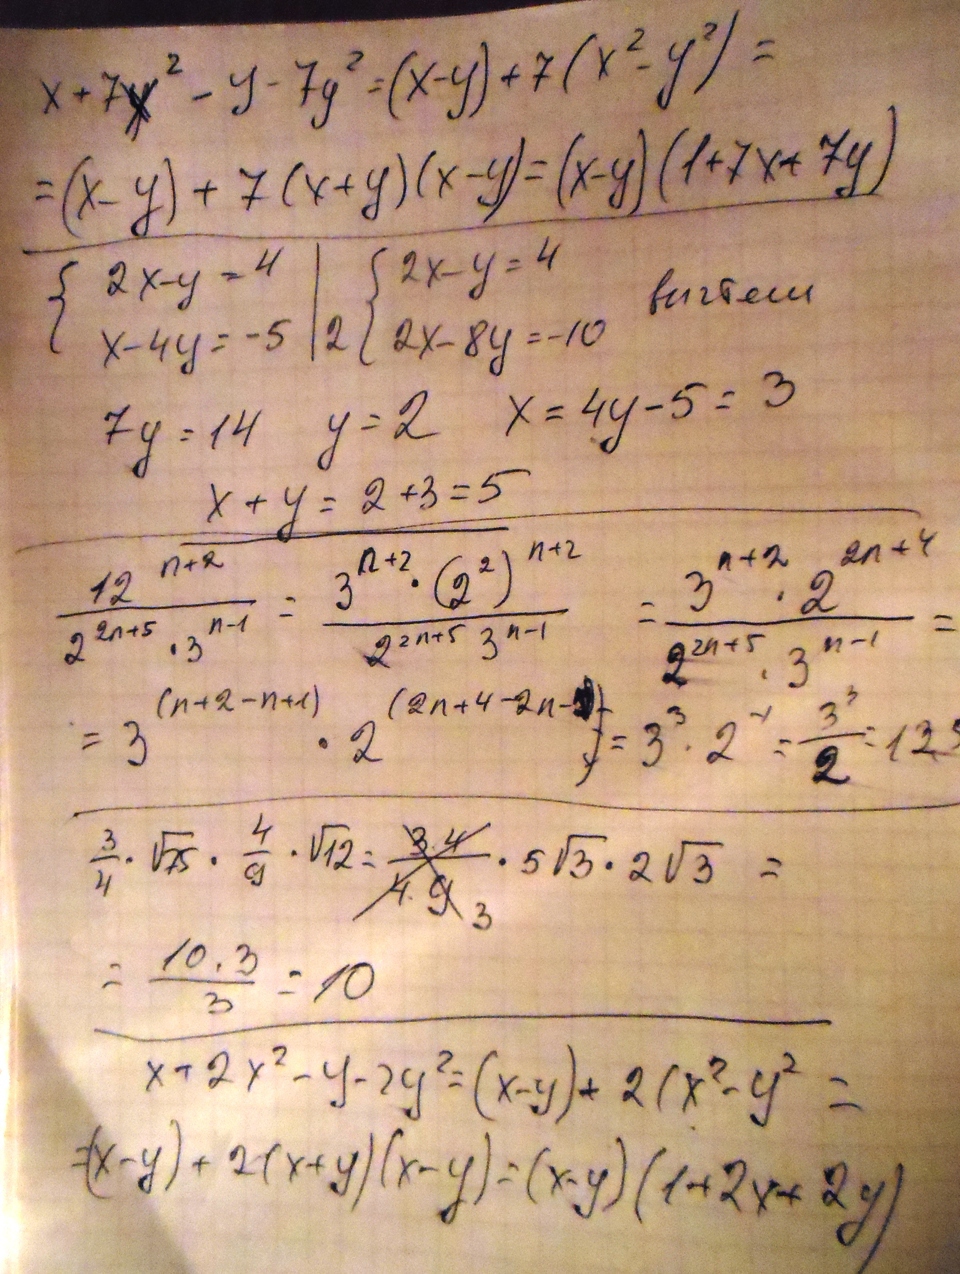 x + 7x² - y - 7y² = (x-y) + 7(x² - y²) =
= (x-y) + 7(x+y)(x-y) = (x-y)(1+7x+7y)
{ 2x-y = 4 | { 2x-y = 4
{ x-4y = -5 | 2 { 2x-8y = -10 вычтем
7y = 14 y = 2 x = 4y-5 = 3
x + y = 2 + 3 = 5
12^(n+2) / (2^(2n+5) · 3^(n-1)) = 3^(n+2) · (2²)^(n+2) / (2^(2n+5) 3^(n-1)) = 3^(n+2) · 2^(2n+4) / (2^(2n+5) · 3^(n-1)) =
= 3^(n+2-n+1) · 2^(2n+4-2n-5) = 3³ · 2^-1 = 3³/2 = 13
3/4 · √75 · 4/9 · √12 = 3·4/4·9 3 · 5√3 · 2√3 =
= 10·3/3 = 10
x + 2x² - y - 2y² = (x-y) + 2(x² - y² =
=(x-y) + 2(x+y)(x-y) = (x-y)(1+2x+2y)